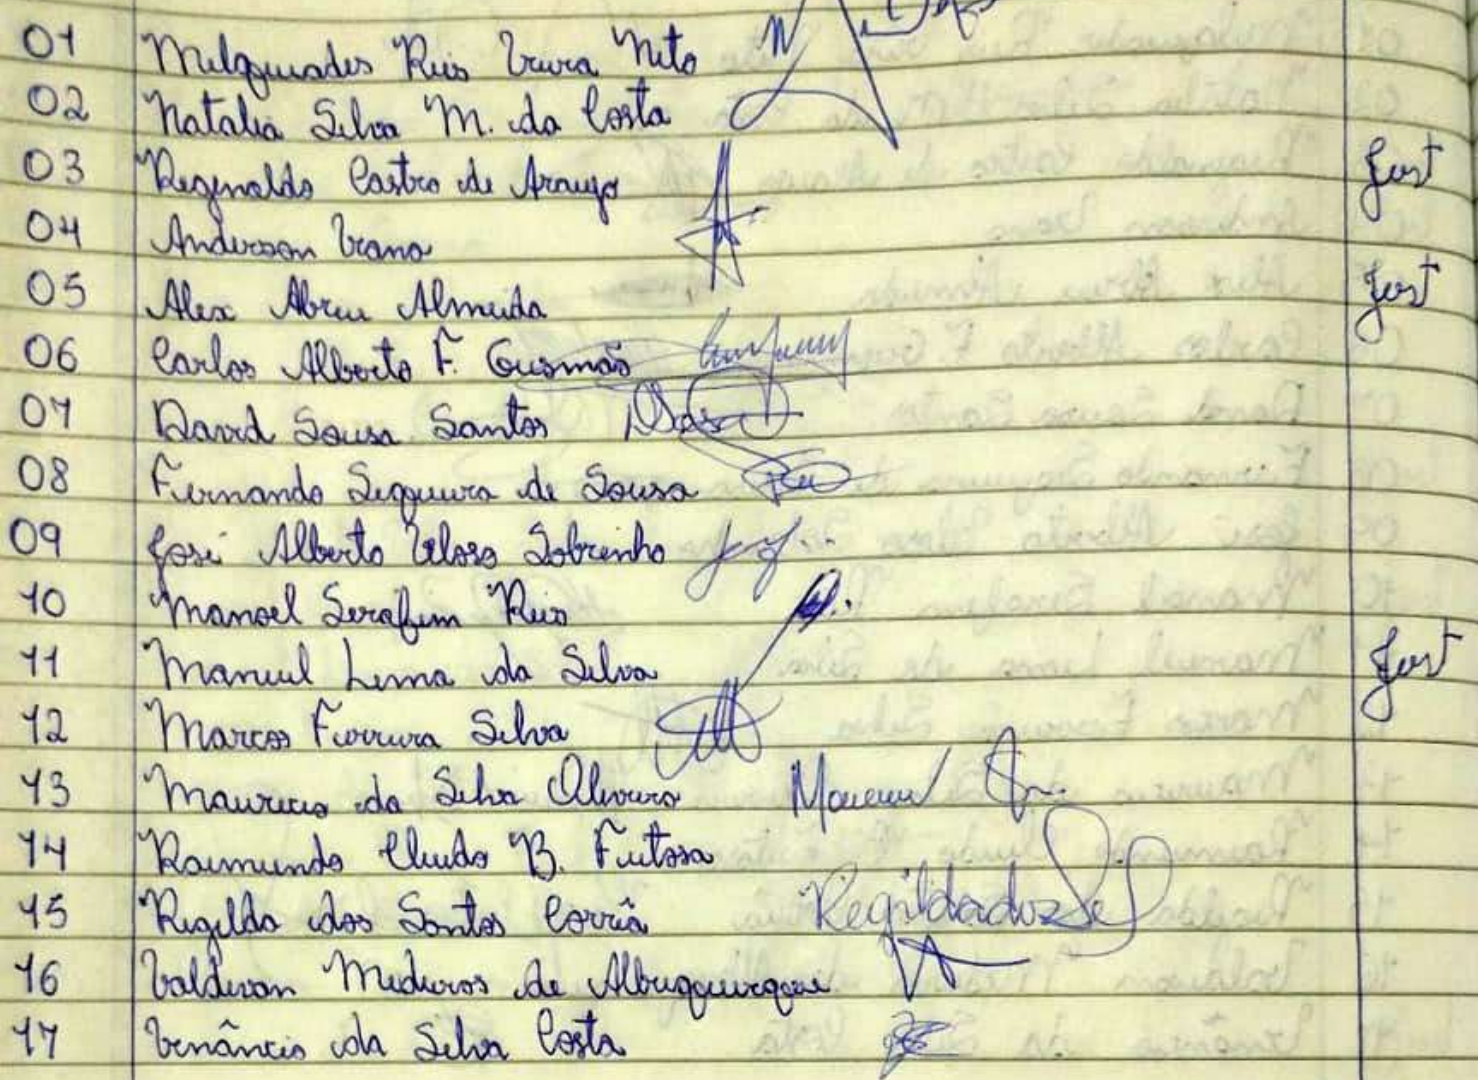 01 Melquiades Reis Vieira Neto
02 Natalia Silva M. da Costa
03 Reginaldo Castro de Araujo Just
04 Anderson Viana
05 Alex Abreu Almeida Just
06 Carlos Alberto F. Gusmão
07 David Sousa Santos
08 Fernando Sequeira de Sousa
09 José Alberto Veloso Sobrinho
10 Manoel Serafim Reis
11 Manuel Lima da Silva Just
12 Marcos Ferreira Silva
13 Mauricio da Silva Oliveira
14 Raimundo B. Feitosa
15 Regilda dos Santos Corrêa Regilda dos
16 Valdivan Medeiros de Albuquerque
17 Venâncio da Silva Costa